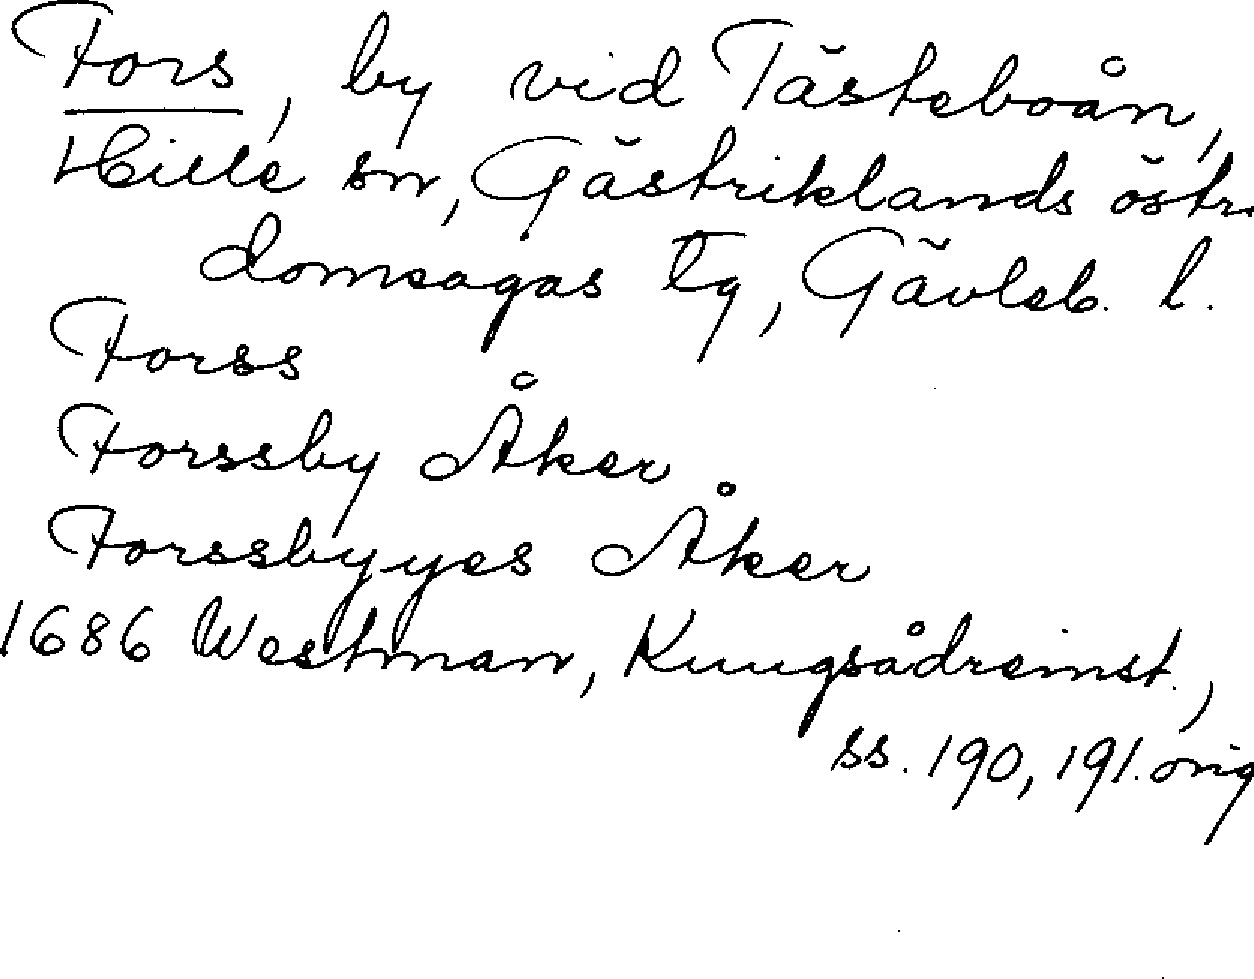 Fors, by vid Tästeboån,
Hille sn, Gästriklands östr.
domsagas tg, Gävleb. l.
Forss
Forssby Åker
Forssbyyes Åker
1686 Westman, Kungsådreinst.,
ss. 190, 191. orig